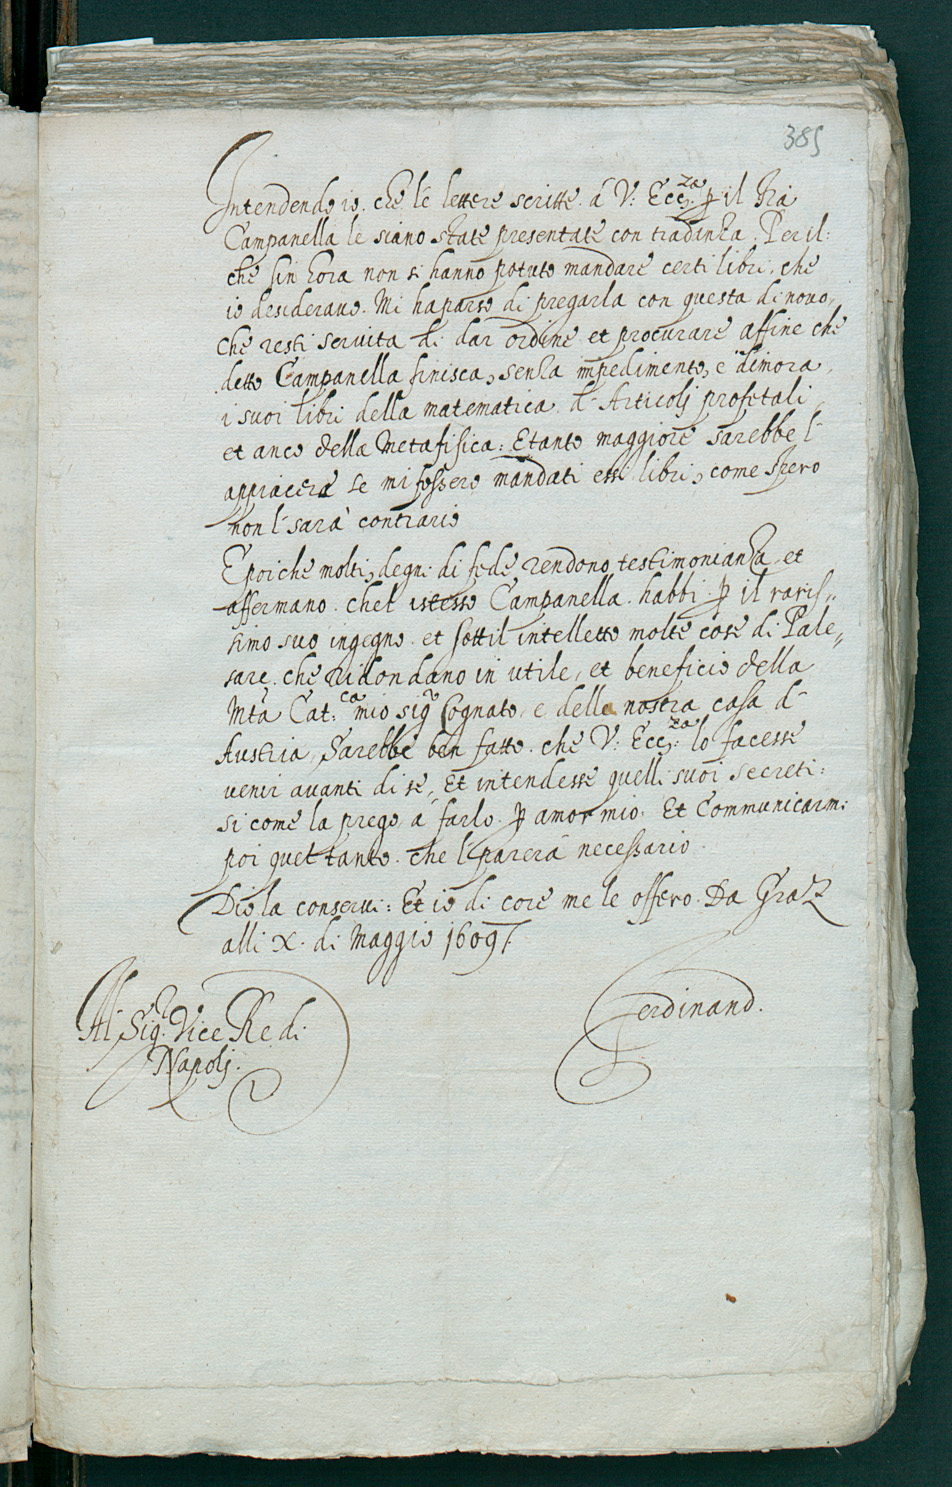 385
Intendendo io, che le lettere scritte á V: Ecc.za p il Frà
Campanella le siano state presentate con tradanza. Per il:
che sin hora non si hanno potuto mandare certi libri, che
io desiderauo. Mi ha parso di pregarla con questa di nouo,
che resti seruita di dar ordine et procurare affine che
detto Campanella finisca, senza impedimento, e dimora,
i suoi libri della matematica, d' Articoli profetali,
et anco della Metafisica: Et anto maggiore sarebbe l'
appiacera se mi fossero mandati essi libri, come spero
non l' sarà contrario
E poi che molti, degni di fede, rendono testimonianza, et
affermano. chel istesso Campanella. habbi. p il raris=
simo suo ingegno. et sottil intelletto molte cose di Pale=
sare. che ridondano in utile, et beneficio della
Mta Cat:ca mio sigr Cognato, e della nostra casa d'
Austria, Sarebbe ben fatto. che V: Ecc.za lo facesse
venir auanti di sé, Et intendesse quelli suoi secreti:
si come la prego, á farlo. p amor mio. Et Communicarmi
poi quel tanto. che l' parerà necessario.
Dio la conserui: Et io di core me le offero. Da Gratz
alli X. di Maggio 1609.
Ferdinand.
Al Sigr. Vice Re di
Napoli.